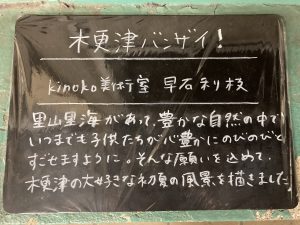 木更津バンザイ!
kinoko美術室 早石利枝
里山里海があって、豊かな自然の中で
いつまでも子供たちが心豊かにのびのびと
すごせますように。そんな願いを込めて、
木更津の大好きな初夏の風景を描きました。